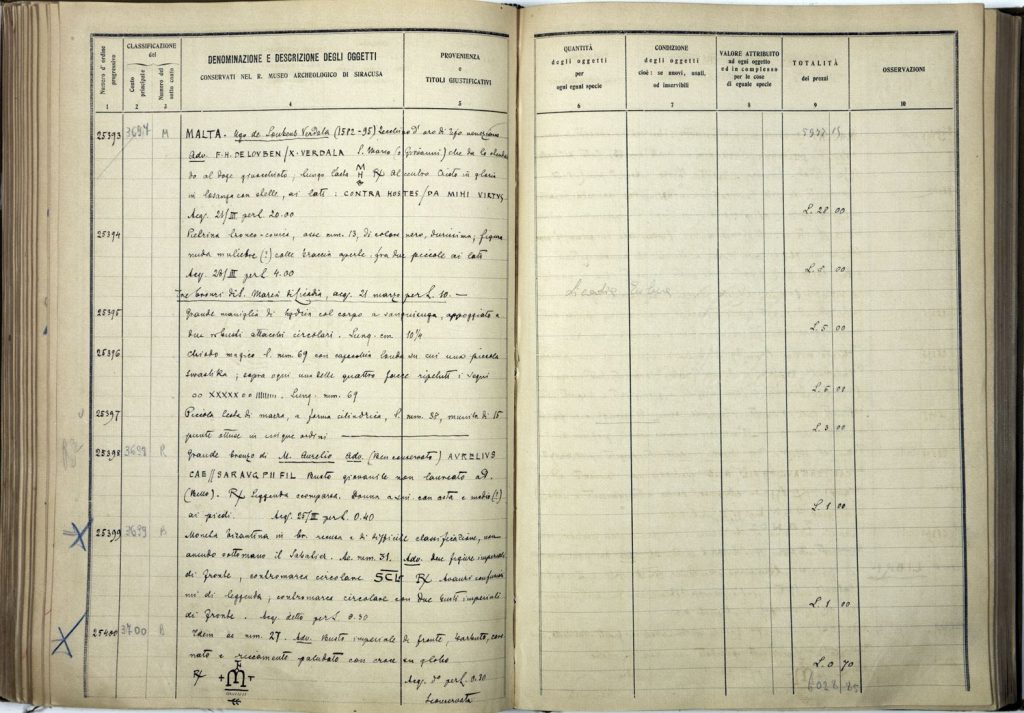 Numero d'ordine progressivo
CLASSIFICAZIONE
del
Conto principale
Numero del sotto conto
DENOMINAZIONE E DESCRIZIONE DEGLI OGGETTI
CONSERVATI NEL R. MUSEO ARCHEOLOGICO DI SIRACUSA
PROVENIENZA
e
TITOLI GIUSTIFICATIVI
QUANTITÀ
degli oggetti
per
ogni egual specie
CONDIZIONE
degli oggetti
cioè: se nuovi, usati,
od inservibili
VALORE ATTRIBUITO
ad ogni oggetto
ed in complesso
per le cose
di eguale specie
TOTALITÀ
dei prezzi
OSSERVAZIONI
1 2 3 4 5 6 7 8 9 10
5977 15
25393 3697 M MALTA. Ugo de Loubens Verdala (1582-95) Zecchino d'oro di tipo veneziano
Adv. F. H. DE LOVBEN / X. VERDALA S. Marco (o Giovanni) che dà lo stenda
do al doge ginocchioto; lungo l'asta M H R ℞ Al centro Cristo in gloria
in losanga con stelle, ai lati: CONTRA HOSTES / DA MIHI VIRTVS
Acq. 24/III per L. 20.00 L. 20 00
25394 Pietrina bronco-conica, asse mm. 13, di colore nero, durissima; figura
nuda muliebre (?) colle braccia aperte fra due piccole ai lati
Acq. 24/III per L 4.00 L. 5 00
Tre bronzi di S. Maria di Licodia, acq. 21 marzo per L. 10. —
Licodia Eubea
25395 Grande maniglia di hydria col corpo a sanguisuga, appoggiato a
due robusti attacchi circolari. Lung. cm 10¼ L. 5 00
25396 Chiodo magico l. mm. 69 con capocchia tonda su cui una piccola
swastika; sopra ogni una delle quattro facce ripetuti i segni
oo XXXXX oo IIIIIIII. Lung. mm. 69 L. 5 00
25397 Piccola testa di mazza, a forma cilindrica, l. mm. 38, munita di 15
punte ottuse in cinque ordini L. 3 00
25398 3698 R Grande bronzo di M. Aurelio Adv. (Ben conservato) AVRELIVS
CAE // SAR AVG. PII FIL Busto giovanile non laureato a D.
(Bello). ℞ Leggenda scomparsa. Donna a sin. con asta e modio (?)
ai piedi. Acq. 25/III per L. 0.40 L. 1 00
25399 3699 B Moneta bizantina in br. recusa e di difficile classificazione, non
avendo sottomano il Sabatier. Ae. mm. 31. Adv. Due figure imperiali
di fronte, contromarca circolare SCLs ℞ Avanzi confusissi
mi di leggenda, contromarca circolare con due busti imperiali
di fronte. Acq. detto per L. 0.30 L. 1 00
25400 3700 B Idem ae mm. 27. Adv. Busto imperiale di fronte, barbuto, coro
nato e riccamente paludato con croce su globo
℞ + M T Acq. d° per L. 0.30 L. 0 70
6028 85